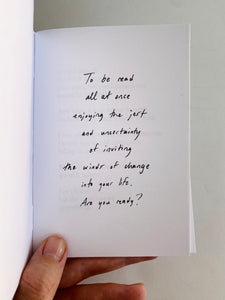 To be read
all at once
enjoying the jest
and uncertainty
of inviting
the winds of change
into your life.
Are you ready?